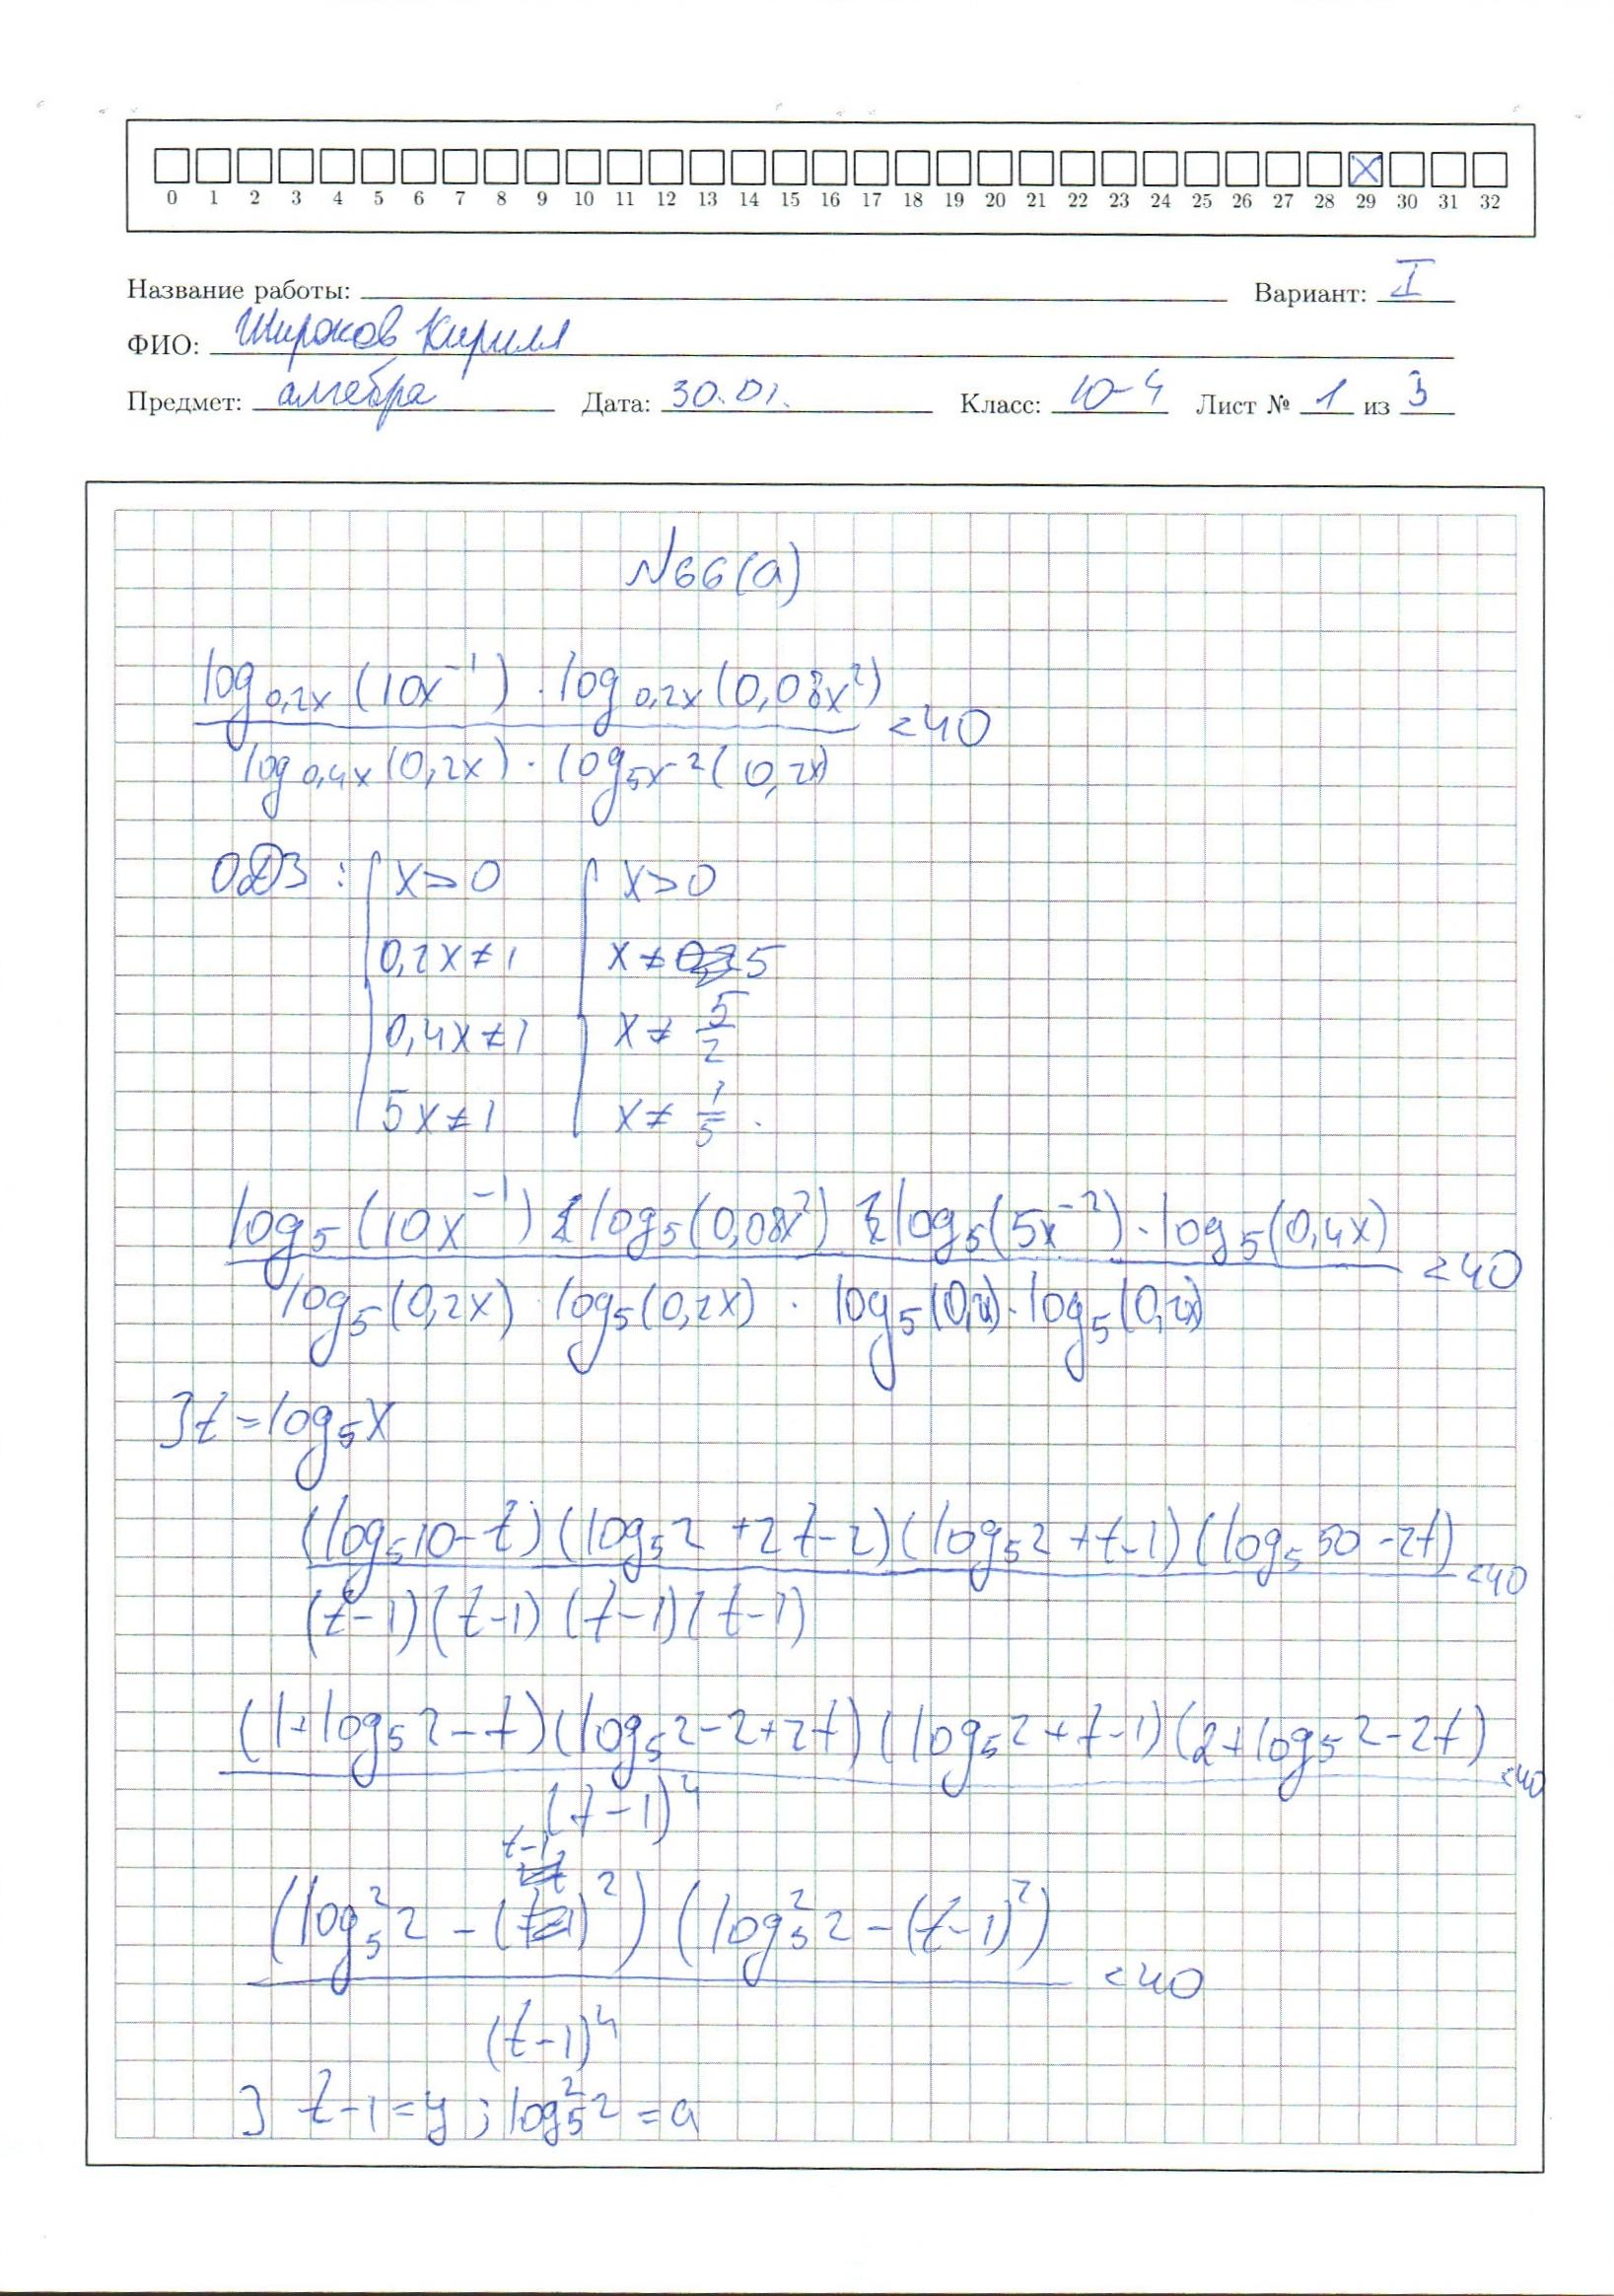 0 1 2 3 4 5 6 7 8 9 10 11 12 13 14 15 16 17 18 19 20 21 22 23 24 25 26 27 28 29 30 31 32
Название работы: Вариант: I
ФИО: Широков Кирилл
Предмет: алгебра Дата: 30.01. Класс: 10-4 Лист № 1 из 3
№66(а)
log_{0,2x}(10x^{-1}) · log_{0,2x}(0,08x^2)
<40
log_{0,4x}(0,2x) · log_{5x^{-2}}(0,2x)
ОДЗ: { x>0 { x>0
0,2x≠1 x≠5
0,4x≠1 x≠5/2
5x≠1 x≠1/5.
log_5(10x^{-1}) · log_5(0,08x^2) · log_5(5x^{-2}) · log_5(0,4x)
<40
log_5(0,2x) · log_5(0,2x) · log_5(0,2x) · log_5(0,2x)
] t=log_5 x
(log_5 10-t)(log_5 2+2t-2)(log_5 2+t-1)(log_5 50-2t)
<40
(t-1)(t-1)(t-1)(t-1)
(1+log_5 2-t)(log_5 2-2+2t)(log_5 2+t-1)(2+log_5 2-2t)
<40
(t-1)^4
(log_5^2 2-(t-1)^2)(log_5^2 2-(t-1)^2)
<40
(t-1)^4
] t-1=y; log_5^2 2=a